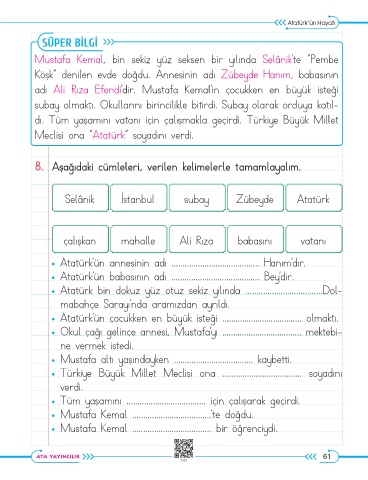 Atatürk'ün Hayatı
SÜPER BİLGİ
Mustafa Kemal, bin sekiz yüz seksen bir yılında Selânik'te "Pembe
Köşk" denilen evde doğdu. Annesinin adı Zübeyde Hanım, babasının
adı Ali Rıza Efendi'dir. Mustafa Kemal'in çocukken en büyük isteği
subay olmaktı. Okullarını birincilikle bitirdi. Subay olarak orduya katıl-
dı. Tüm yaşamını vatanı için çalışmakla geçirdi. Türkiye Büyük Millet
Meclisi ona "Atatürk" soyadını verdi.
8. Aşağıdaki cümleleri, verilen kelimelerle tamamlayalım.
Selânik İstanbul subay Zübeyde Atatürk
çalışkan mahalle Ali Rıza babasını vatanı
• Atatürk'ün annesinin adı ........................................ Hanım'dır.
• Atatürk'ün babasının adı ........................................ Bey'dir.
• Atatürk bin dokuz yüz otuz sekiz yılında ...................................Dol-
mabahçe Sarayı'nda aramızdan ayrıldı.
• Atatürk'ün çocukken en büyük isteği .................................... olmaktı.
• Okul çağı gelince annesi, Mustafa'yı .................................... mektebi-
ne vermek istedi.
• Mustafa altı yaşındayken .................................... kaybetti.
• Türkiye Büyük Millet Meclisi ona .................................... soyadını
verdi.
• Tüm yaşamını .................................... için çalışarak geçirdi.
• Mustafa Kemal ....................................'te doğdu.
• Mustafa Kemal .................................... bir öğrenciydi.
ATA YAYINCILIK
61